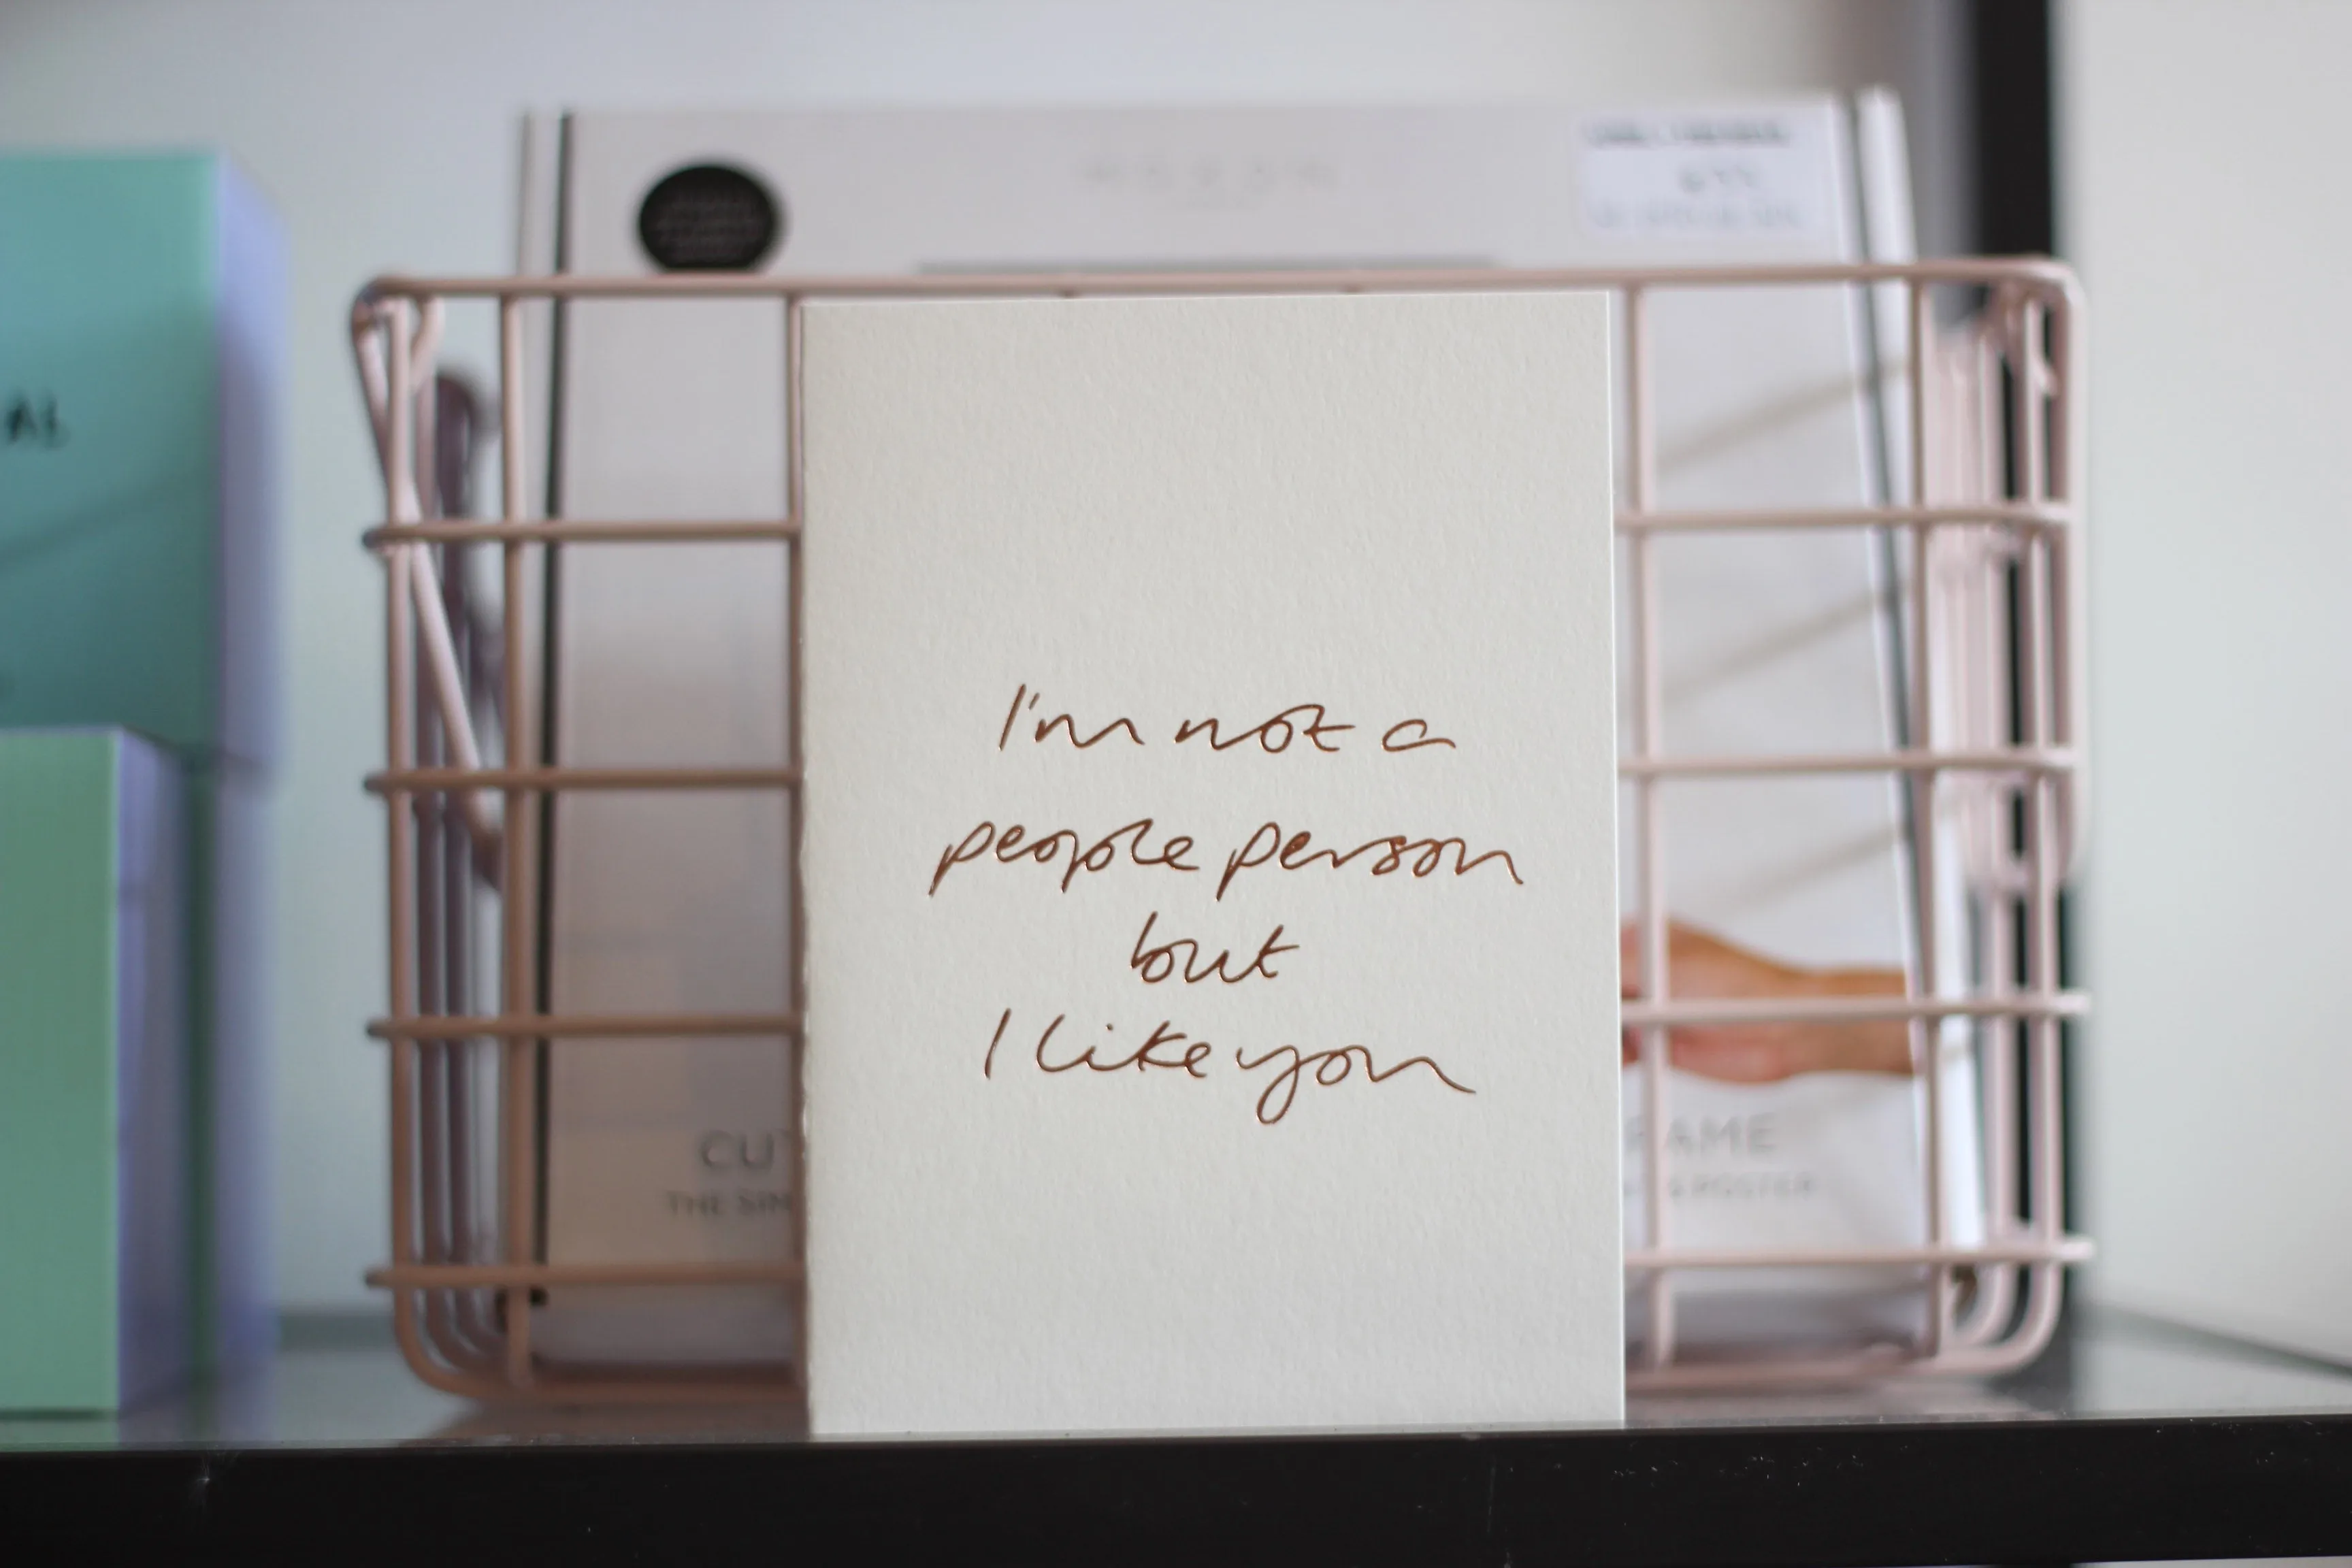 I'm not a
people person
but
I like you
AL
CUT
THE SIM
FRAME
& POSTER